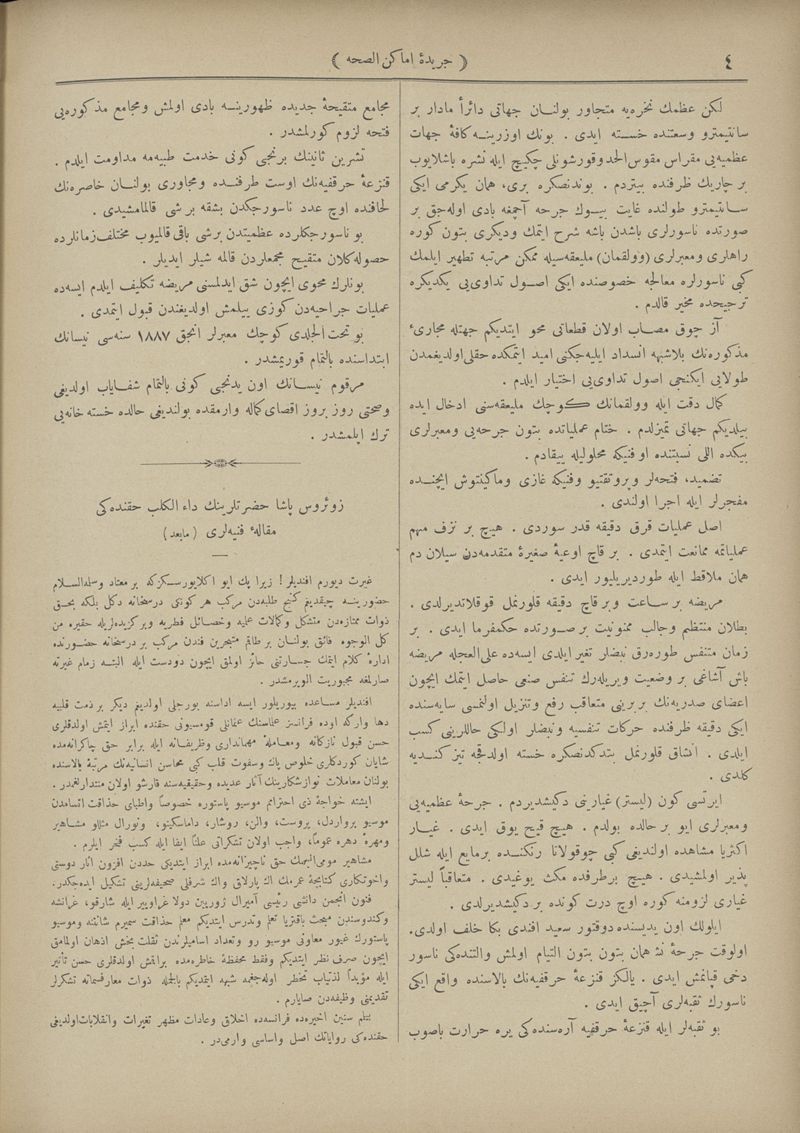 ٤
﴿ جريدۀ اماكن الصحه ﴾
لكن عظمك نخره‌يه متجاور بولنان جهاتی دائراً مادار بر
سانتيمترو وسعتنده خسته ايدی . بونك اوزرينه كافۀ جهات
عظميه‌يی مقراس مقوس الحد وقورشونلی چكيچ ايله نشره باشلايوب
بر چاريك ظرفنده بيتردم . بوندنصكره بری، همان يكرمی ايكی
سانتيمترو طولنده غايت بيوك جرحه آچمغه بادی اوله‌جق بر
صورتده ناسورلری باشدن باشه شرح ايتمك وديكری بتون كوره
راهلری ومعبرلری (وولقمان) ملعقه‌سيله ممكن مرتبه تطهير ايلمك
كبی ناسورلره معالجه خصوصنده ايكی اصول تداوی‌يی يكديكره
ترجيحده مخير قالدم .
آز چوق مصاب اولان قطعاتی محو ايتديكم جهتله مجاریٔ
مذكوره‌نك بلاشبهه انسداد ايليه‌جكنی اميد ايتمكده حقلی اولديغمدن
طولايی ايكنجی اصول تداوی‌يی اختيار ايلدم .
كمال دقت ايله وولقمانك كوچك ملعقه‌سنی ادخال ايده
بيلديكم جهاتی تميزلدم . ختام عملياتده بتون جرحه‌يی ومعبرلری
بيكده اللی نسبتنده او فنيكه محلوليله ييقادم .
تضميد، فتحه‌لر وبروتقتيو وفنيكه غازی وماكينتوش ايچنده
مفجرلر ايله اجرا اولندی .
اصل عمليات قرق دقيقه قدر سوردی . هيچ بر نزف مهم
عملياتمه ممانعت ايتمدی . بر قاچ اوعيۀ صغيرۀ متقدمه‌دن سيلان دم
همان ملاقط ايله طورديريليور ايدی .
مريضه بر ساعت وبرقاچ دقيقه قلورنمل قوقلاتديرلدی .
بطلان منتظم وجالب ممنونيت بر صورتده حكمفرما ايدی . بر
زمان متنفس طوره‌رق نبضلر تغير ايلدی ايسه‌ده علی‌العجله مريضه
باش آشاغی بر وضعيت ويريله‌رك تنفس صنعی حاصل ايتمك ايچون
اعضای صدريه‌نك بربرينی متعاقب رفع وتنزيل اولنمسی سايه‌سنده
ايكی دقيقه ظرفنده حركات تنفسيه ونبضلر اولكی حاللرينی كسب
ايلدی . انشاق قلورنمل بتدكدنصكره خسته اولدقجه تيز كنديه
كلدی .
ايرتسی كون (ليستر) غيارينی دكيشديردم . جرحۀ عظميه‌يی
ومعبرلری ايو بر حالده بولدم . هيچ قيح يوق ايدی . غيار
اكثريا مشاهده اولنديغی كبی چوقولاتا رنكنده برمايع ايله شلل
پذير اولمشيدی . هيچ برطرفده مكث يوغيدی . متعاقباً ليستر
غياری لزومنه كوره اوچ درت كونده بر دكيشديرلدی .
ايلولك اون يديسنده دوقتور سعيد افندی بكا خلف اولدی.
اولوقت جرحه نڭ همان بتون بتون التيام اولمش والتنده‌كی ناسور
دخی قپانمش ايدی . يالكز قنزعۀ حرقفيه‌نك بالاسنده واقع ايكی
ناسورك ثقبه‌لری آچيق ايدی .
بو ثقبه‌لر ايله قنزعۀ حرقفيه آره‌سنده‌كی يره حرارت باصوب
مجامع متقيحۀ جديده ظهورينه بادی اولمش ومجامع مذكوره‌يی
فتحه لزوم كورلمشدر .
تشرين ثانينك برنجی كونی خدمت طبيه‌مه مداومت ايلدم .
قنزعۀ حرقفيه‌نك اوست طرفنده ومجاوری بولنان خاصره‌نك
لحافنده اوچ عدد ناسورجكدن بشقه برشی قالمامشيدی .
بو ناسورجكلرده عظميتدن برشی باقی قالميوب مختلف زمانلرده
حصوله‌كلان متقيح مجمعلردن قالمه شيلر ايديلر .
بونلرك محوی ايچون شق ايدلمسنی مريضه تكليف ايلدم ايسه‌ده
عمليات جراحيه‌دن كوزی ييلمش اولديغندن قبول ايتمدی .
بو تحت‌الجلدی كوچك معبرلر انجق ١٨٨٧ سنه‌سی نيسانك
ابتداسنده بالتمام قوريمشدر .
مرقوم نيسانك اون يدنجی كونی بالتمام شفاياب اولديغی
وصحتی روز بروز اقصای كماله وارمقده بولنديغی حالده خسته خانه‌يی
ترك ايلمشدر .
زوئروس پاشا حضرتلرينك داء الكلب حقنده‌كی
مقالهٔ فنيه‌لری (مابعد)
غيرت ديورم افنديلر! زيرا پك ايو اكلايورسكزكه بر معتاد وسله‌السلام
حضورينه چيقديغم كنج طلبه‌دن مركب هر كونكی درسخانه دكل بلكه بحق
ذوات ممتازه‌دن متشكل وكمالات علميه وخصائل فطريه وبركزيده‌لريله حقيره من
كل الوجوه فائق بولنان بر طاقم متبحرين فندن مركب بر درسخانه حضورنده
ادارۀ كلام ايتمك جسارتنی حائز اولمق ايچون دودست ايله البته زمام غيرته
صارلمغه مجبوريت الويرمشدر .
افنديلر مساعده بيوريلور ايسه اداسنه بورجلی اولديغم ديكر بر ذمت قلبيه
دها واركه اوده فرانسز عباسنك عثمانلی قوميسيونی حقنده ابراز ايتمش اولدقلری
حسن قبول نازكانه ومعاملۀ مهماندارى وظريفانه ايله برابر حق چاكرانه‌مده
شايان كوردكلری خلوص پاك وصفوت قلب كبی محاسن انسانيه‌نك مرتبۀ بالاسنده
بولنان معاملات نوازشكارينك آثار عديده وحقيقيه‌سنه قارشو اولان منتدارلغمدر .
ايشته خواجۀ ذی احترام موسيو پاستوره خصوصاً واطبای حذاقت اتسامدن
موسيو برواردل، پروست، والن، روشار، داماسكينو، ونورال مثللو مشاهير
ومهرۀ دهره عموماً، واجب اولان تشكراتی علناً ايفا ايله كسب فخر ايلرم .
مشاهير مومی‌اليهمك حق ناچيزانه‌مده ابراز ايتديكی حددن افزون آثار دوستی
واخوتكاری كتابچۀ عمرمك اك پارلاق واك شرفلی صحيفه‌لرينی تشكيل ايده‌جكدر.
فنون انجمن دانشی رئيسی آميرال ژوريين دولا غراويير ايله شارقو، غرانشه
وكندوسندن مبحث باقتريا تعلم وتدرس ايتديكم معلم حذاقت سميرم شانتنه وموسيو
پاستورك غيور معاونی موسيو رو وتعداد اساميلرندن ثقلت بخش اذهان اولمامق
ايچون صرف نظر ايتديكم وفقط محفظۀ خاطره‌مده براقمش اولدقلری حسن تأثير
ايله مؤبداً لذتياب تخطر اوله‌جغمه شبهه ايتمديكم بالجمله ذوات معارفسماته تشكرلر
تقديمی وظيفه‌دن صايارم .
بتلم سنين اخيره‌ده فرانسه‌ده اخلاق وعادات مظهر تغيرات وانقلابات‌اولديغی
حقنده‌كی رواياتك اصل واساسی وارمی‌در .